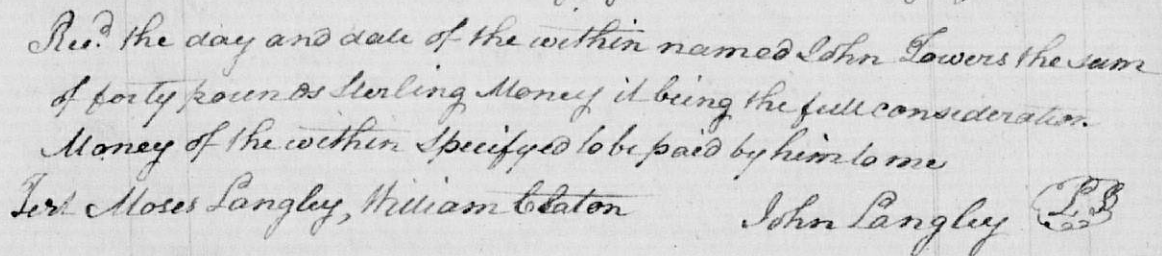 Rec.d the day and date of the within named John Towers the sum
of forty pounds Sterling Money it being the full consideration
Money of the within Specifyed to be paid by him to me
Test Moses Langley, William Claton John Langley LS